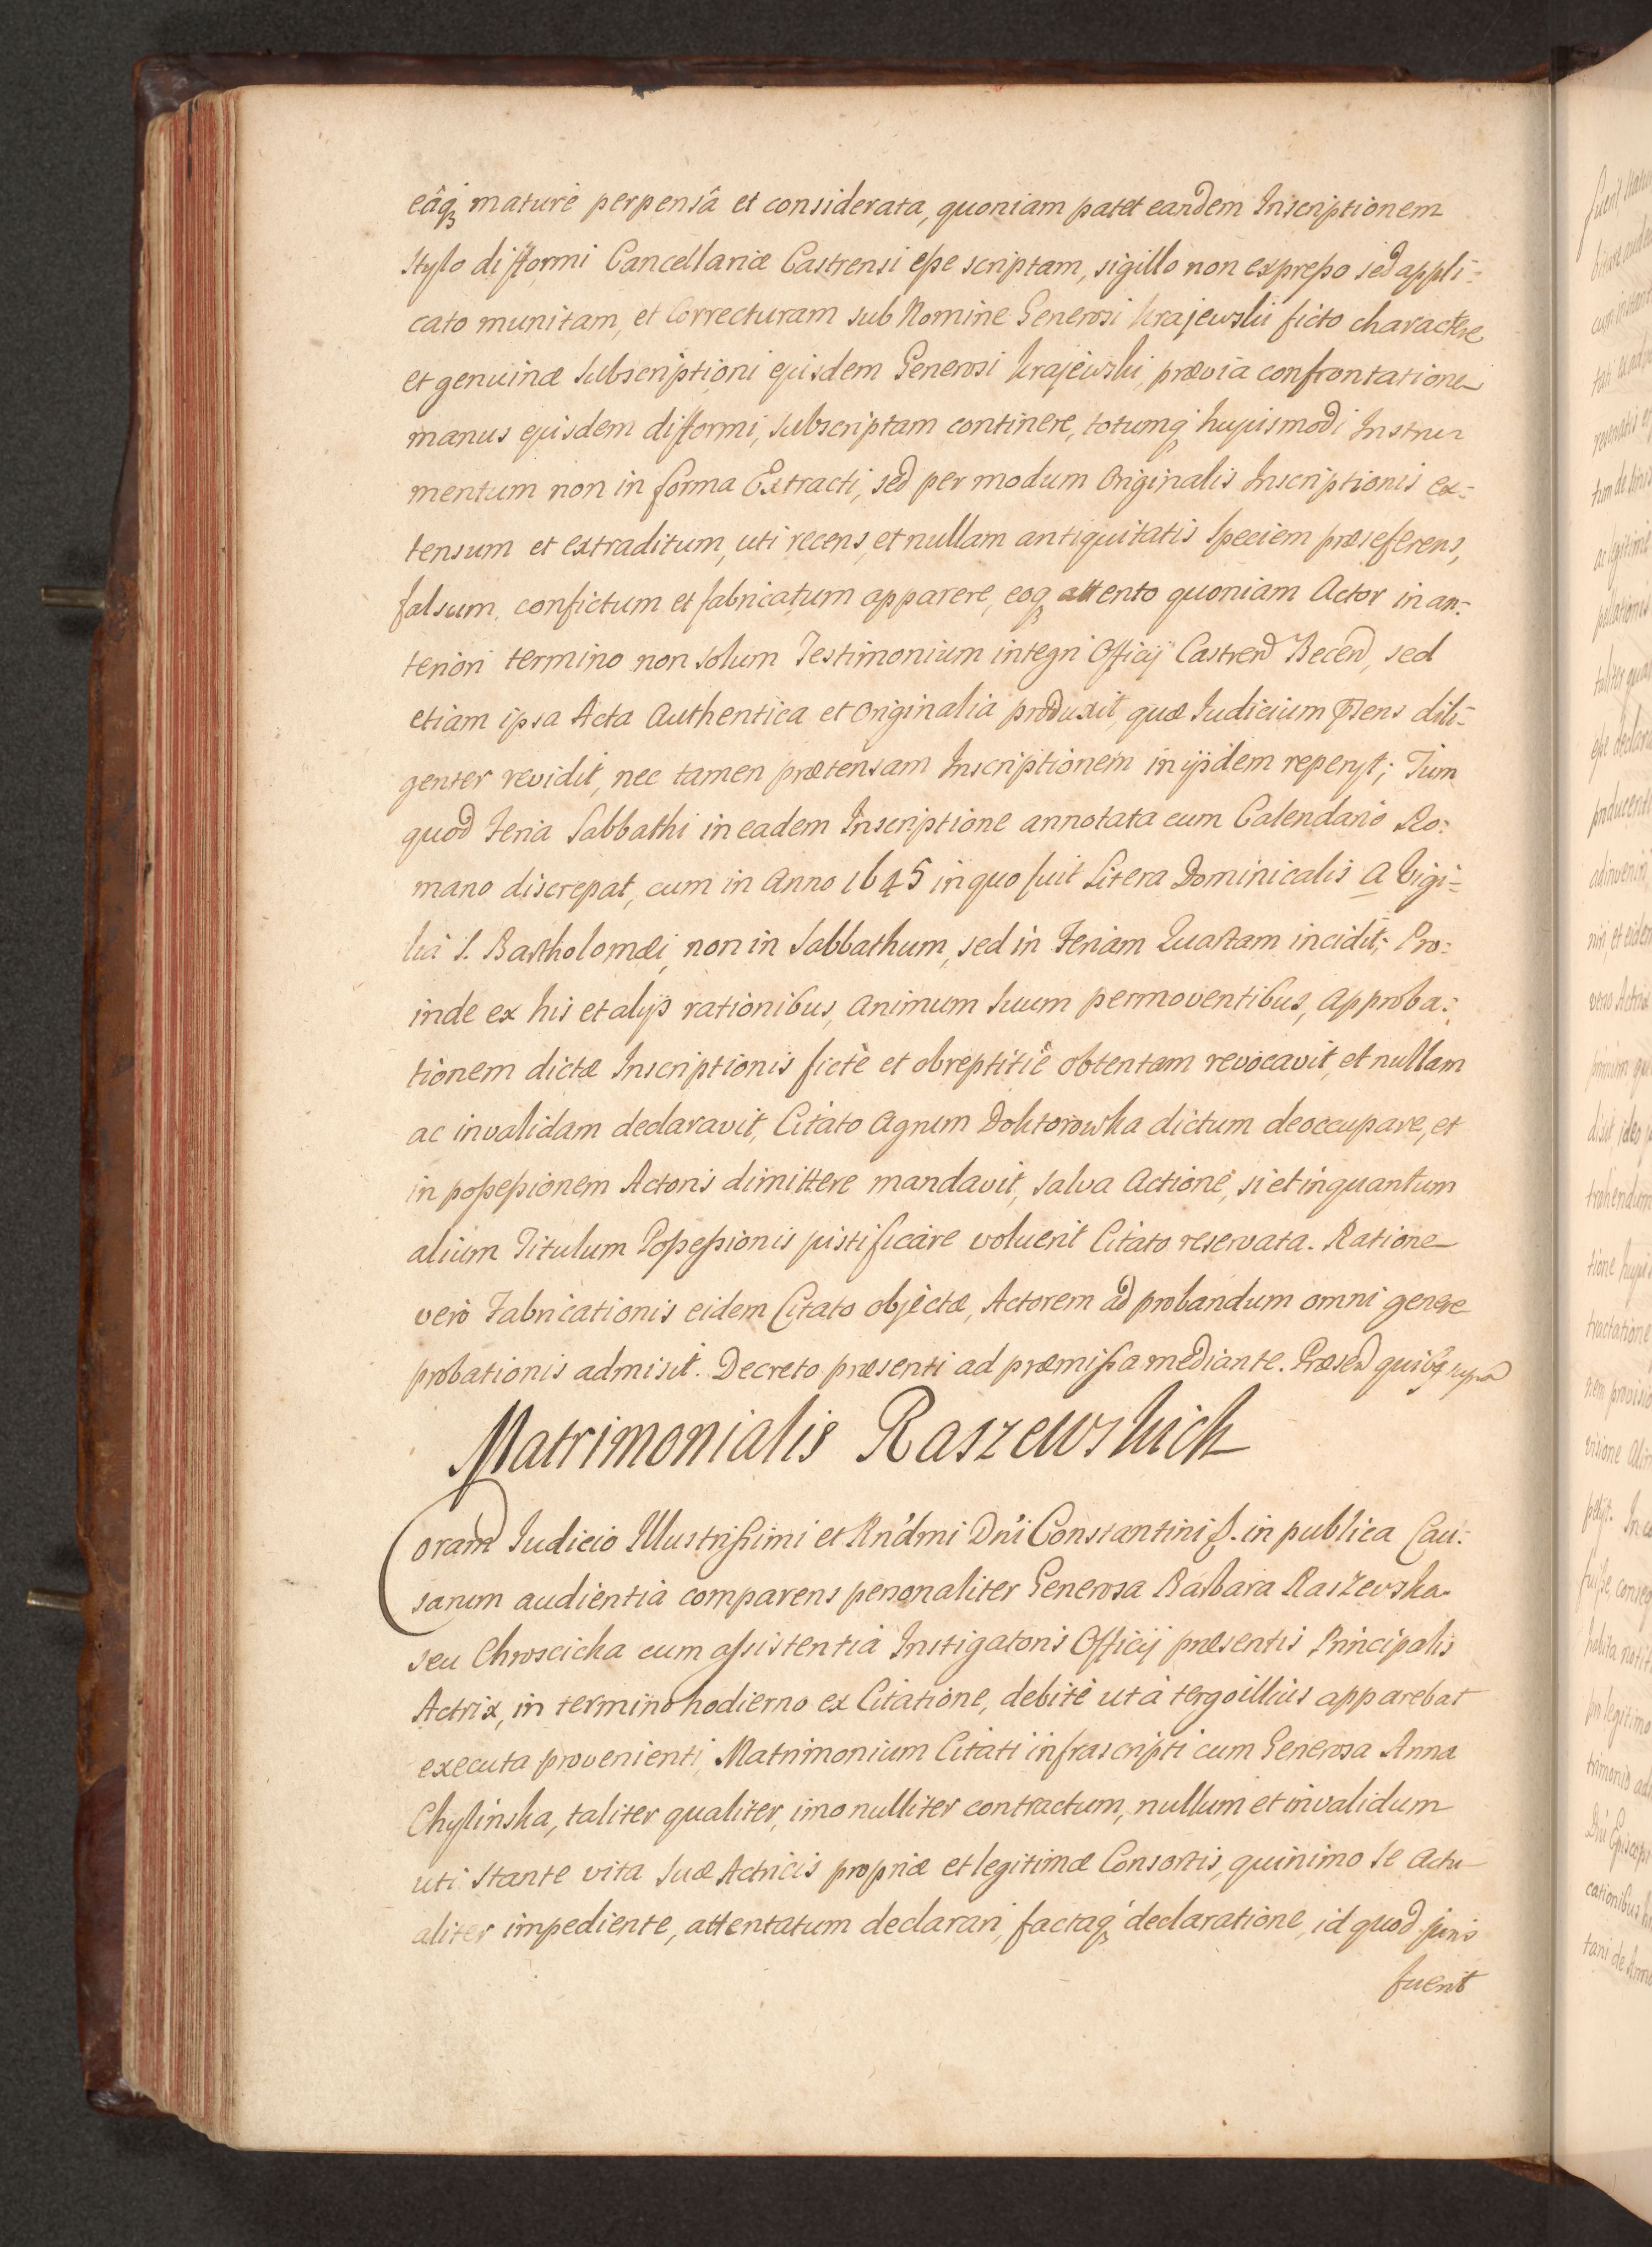 eâq₃ maturè perpensâ et considerata, quoniam patet eandem Inscriptionem
Stylo difformi Cancellariæ Castrensi esse scriptam, sigillo non expresso sed appli=
cato munitam, et Correcturam sub Nomine Generosi Krajewski ficto charactere
et genuinæ Subscriptioni ejusdem Generosi Krajewski, prævia confrontatione
manus ejusdem difformi, Subscriptam continere, totumq₃ hujusmodi Instru=
mentum non in forma Extracti, sed per modum Originalis Inscriptionis ex=
tensum et extraditum, uti recens, et nullam antiquitatis Speciem præseferens,
falsum, confictum et fabricatum apparere, eoq₃ attento quoniam Actor in an=
teriori termino non solum Testimonium integri Officij Castren̄ Recen̄, sed
etiam ipsa Acta Authentica et Originalia produxit, quæ Judicium p̄sens dili=
genter revidit, nec tamen prætensam Inscriptionem in ijsdem reperijt; Tum
quod Feria Sabbathi in eadem Inscriptione annotata cum Calendario Ro=
mano discrepat, cum in Anno 1645 in quo fuit Litera Dominicalis A Vigi=
lia S. Bartholomæi, non in Sabbathum, sed in Feriam Quartam incidit; Pro=
inde ex his et alijs rationibus, Animum Suum permoventibus, Approba=
tionem dictæ Inscriptionis fictè et obreptitiè obtentam revocavit, et nullam
ac invalidam declaravit, Citato Agrum Doktorowska dictum deoccupare, et
in possessionem Actoris dimittere mandavit, Salva Actione, si et inquantum
alium Titulum Possessionis justificare voluerit Citato reservata. Ratione
verò Fabricationis eidem Citato objectæ, Actorem ad probandum omni genere
probationis admisit. Decreto præsenti ad præmissa mediante. Præsen̄ quibq₃ supra
Matrimonialis Raszewskich
Coram Judicio Illustrissimi et Rndmi Dni Constantini S. in publica Cau=
sarum audientia comparens personaliter Generosa Barbara Raszewska
seu Chroscicka cum assistentia Instigatoris Officij præsentis Principalis
Actrix, in termino hodierno ex Citatione, debitè ut à tergo illius apparebat
executa provenienti, Matrimonium Citati infrascripti cum Generosa Anna
Chylinska, taliter qualiter, imo nulliter contractum, nullum et invalidum
uti Stante vita Suæ Actricis propriæ et legitimæ Consortis, quinimo Se Actu
aliter impediente, attentatum declarari, factaq₃ declaratione, id quod juris
fuerit